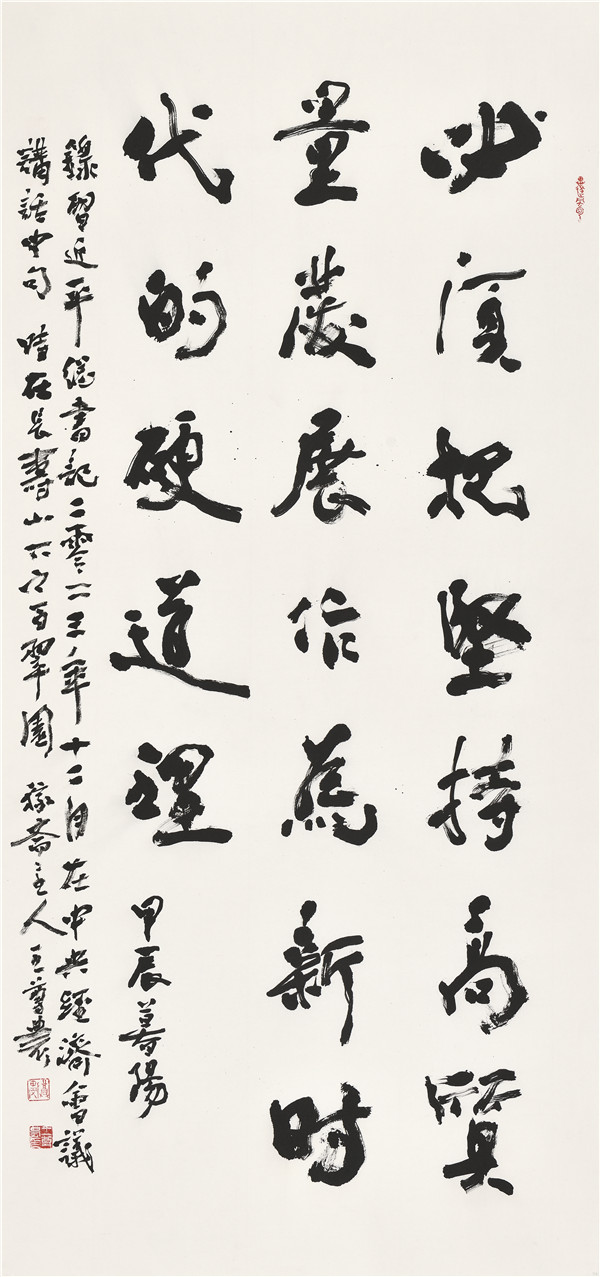 必须把坚持高質
量發展作為新时
代的硬道理
甲辰暮陽
錄習近平總書記二零二三年十二月在中央經濟會議
講話中句 時在長壽山下 百翠園 齋主人 王